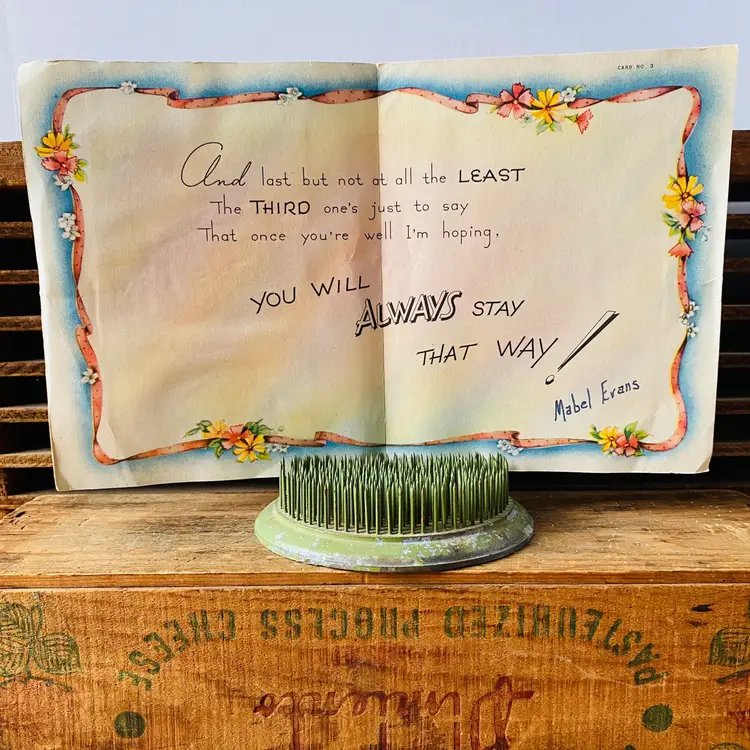 CARD NO. 3
And last but not at all the LEAST
The THIRD one's just to say
That once you're well I'm hoping,
YOU WILL
ALWAYS STAY
THAT WAY!
Mabel Evans
PASTEURIZED PROCESS CHEESE
Pimiento